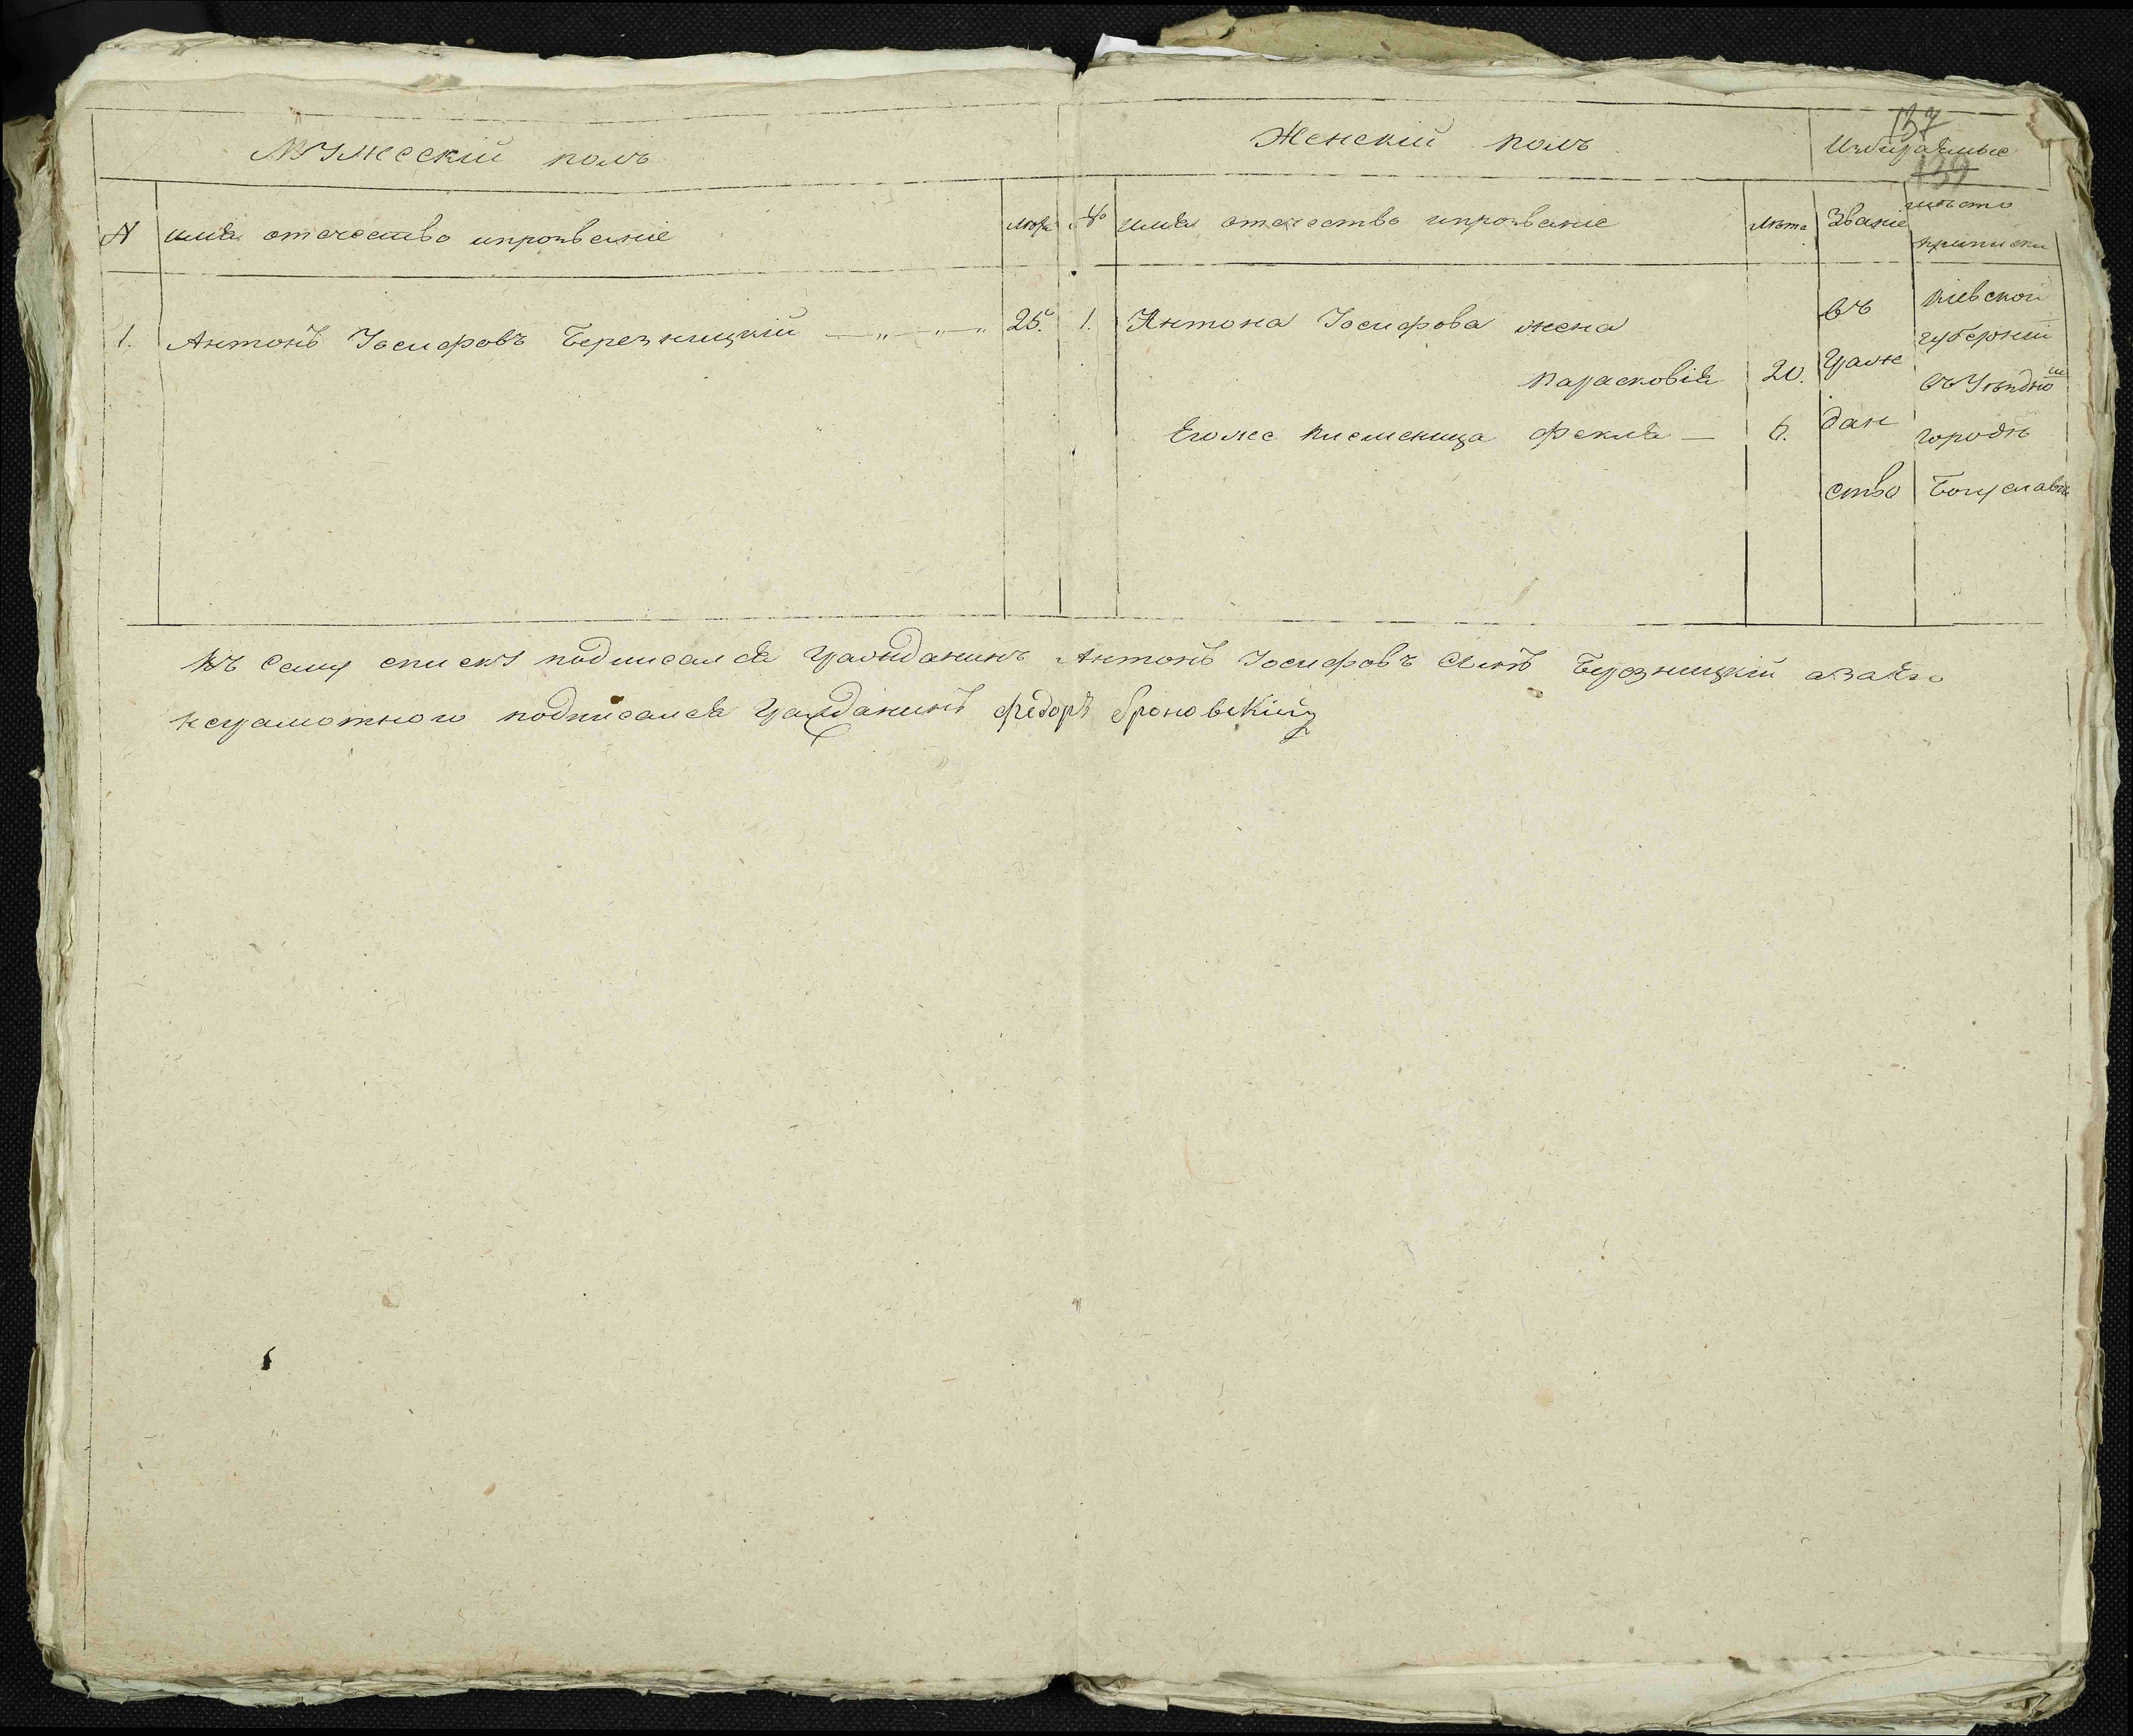 Мужескій полъ
Женскій полъ
137
Избираемые
139
N имя отечество ипрозваніе лѣта № имя отечество ипрозваніе лѣта Званіе мѣсто приписки
1. Антонъ Іосифовъ Березницкій 25. 1. Антона Іосифова жена
Парасковія 20.
Егоже племеница Фекла 6.
въ граж дан ство
Кіевской
губерніи
въ Уѣздно
городѣ
Богуславѣ
Къ сему списку подписался гражданинъ Антонъ Іосифовъ Сынъ Березницкій азаего
неграмотного подписался гражданинъ федоръ броновскій